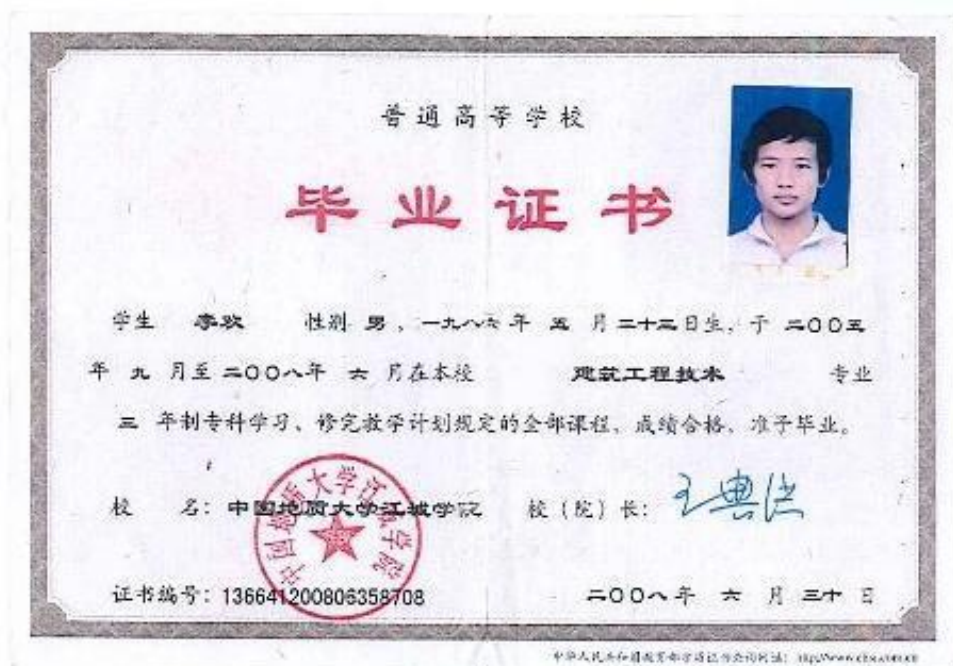 普通高等学校
毕业证书
学生 李欢 性别 男、一九八六年 五 月二十二日生、于 二〇〇五
年 九 月至二〇〇八年 六 月在本校 建筑工程技术 专业
三 年制专科学习、修完教学计划规定的全部课程、成绩合格、准予毕业。
校 名：中国地质大学江城学院 校（院）长：王典洪
中国地质大学江城学院
证书编号：136641200806358708 二〇〇八年 六 月 三十 日
中华人民共和国教育部学历证书查询网址：http://www.chsi.com.cn